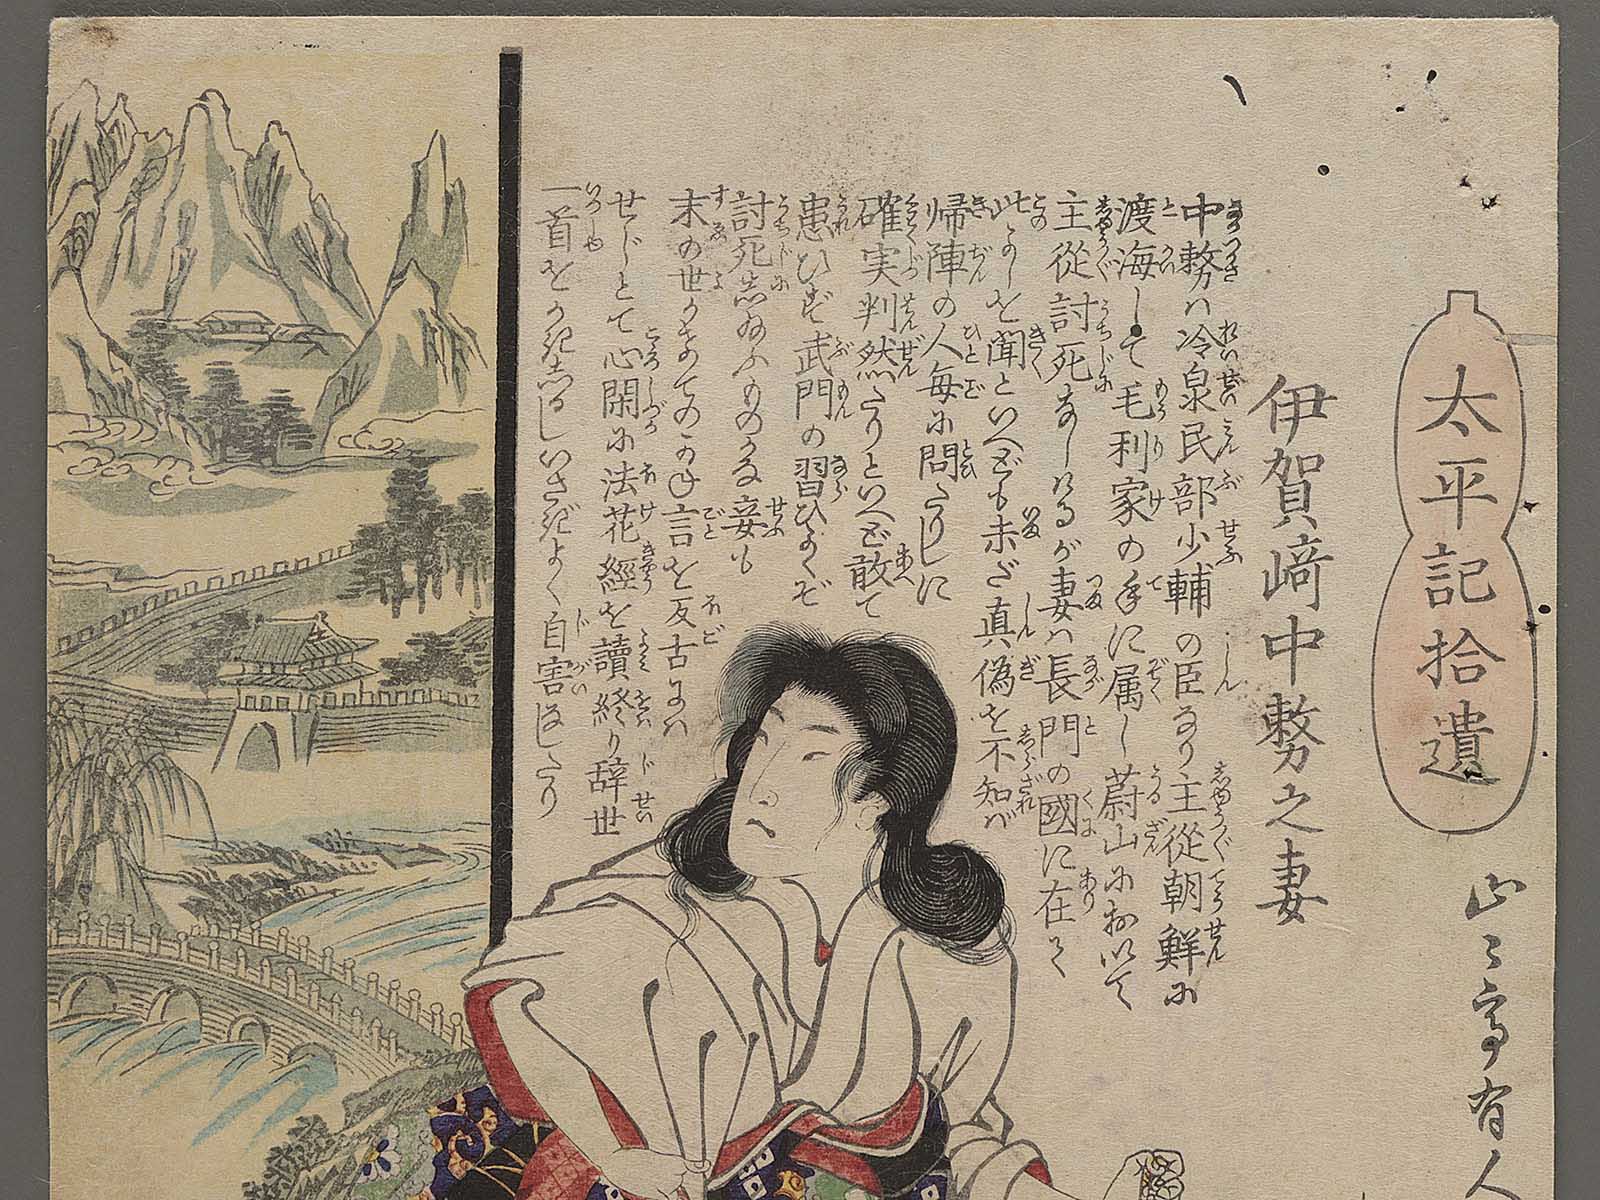 太平記拾遺
山々亭有人
伊賀﨑中務之妻
中務ハ冷泉民部少輔の臣なり主從朝鮮に
渡海して毛利家の手に属し蔚山に於いて
主從討死なしけるが妻ハ長門の國に在て
此よしを聞といへども未だ真偽を不知バ
帰陣の人毎に問たりしに
確実判然たりといへど敢て
患ひず武門の習ひよくぞ
討死し給ふものかな妾も
末の世かきての言を反古にハ
せじとて心閑に法花經を讀終り辞世
一首をかきしるしいさぎよく自害なしたり